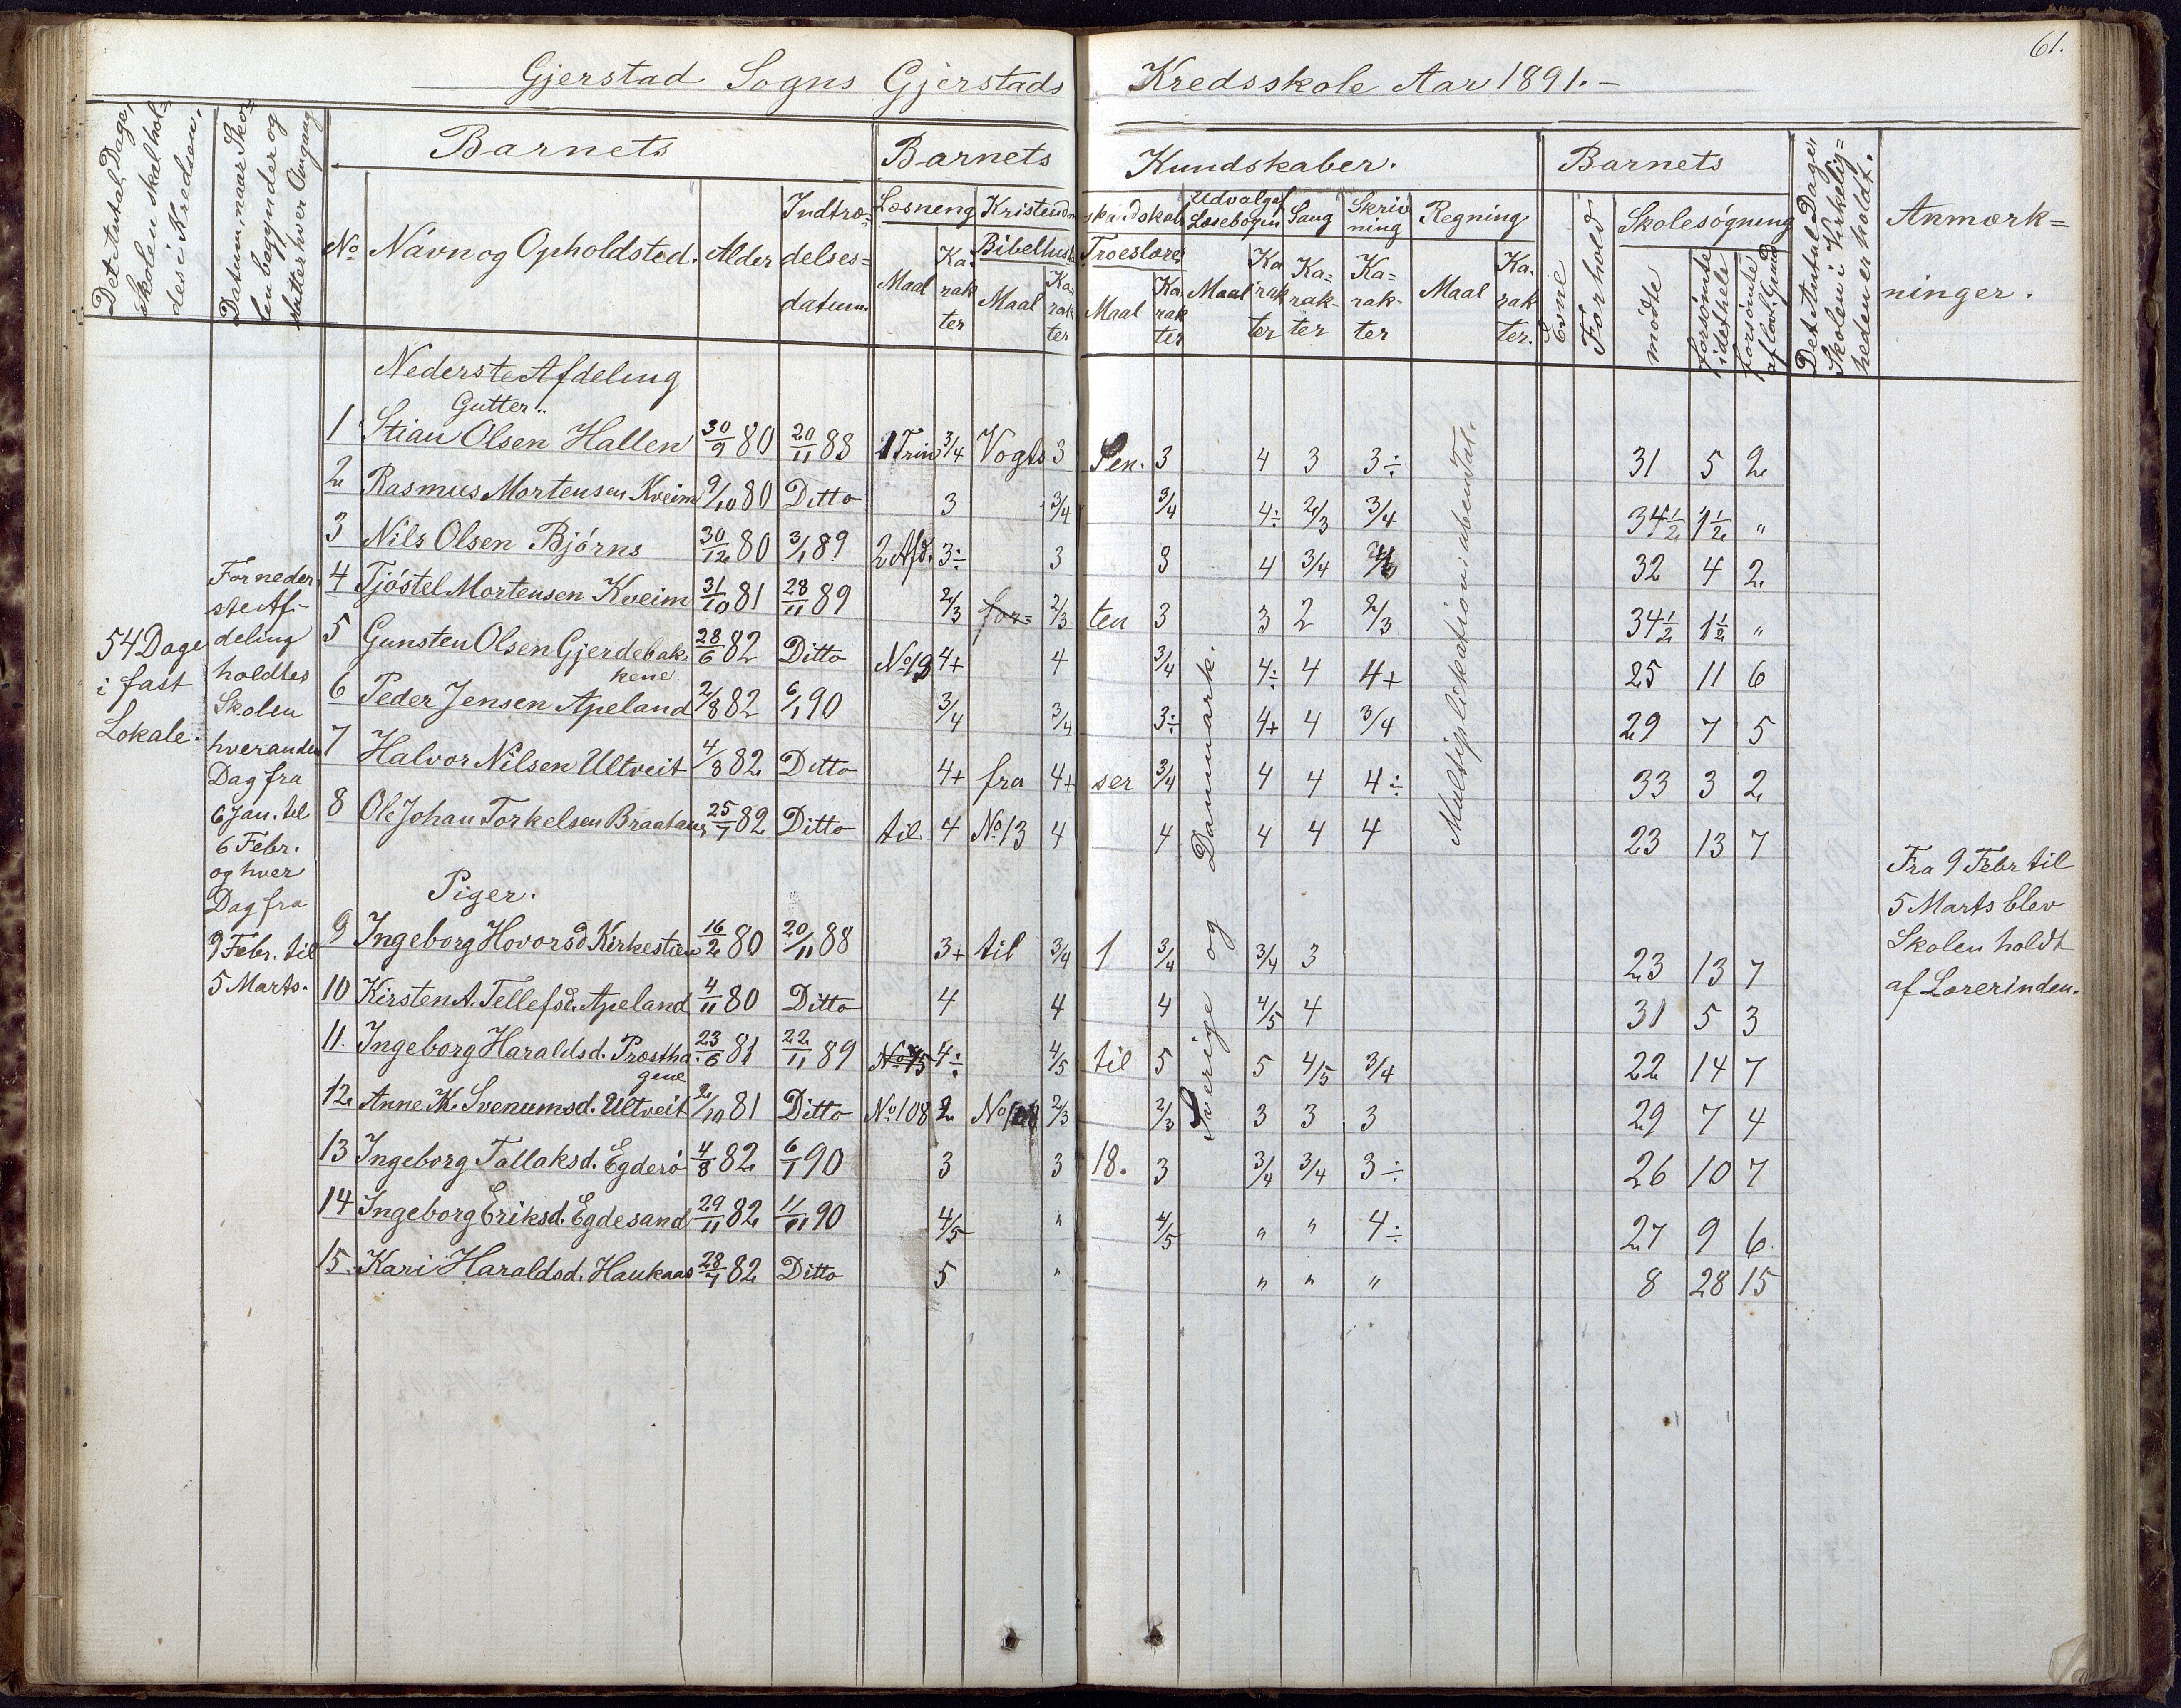 61.
Gjerstad Sogns Gjerstads Kredsskole Aar 1891.
Det Antal Dage, Skolen skal holdes i Kredsen.
Datum, naar Skolen begynder og slutter hver Omgang
Barnets
No Navn og Opholdsted. Alder Indtrædelsesdatum.
Barnets Kundskaber.
Læsning Maal Karakter
Kristendomskundskab Bibelhist. Maal Karakter Troeslære Maal Karakter
Udvalgaf Læsebogen Maal Karakter
Sang Karakter
Skrivning Karakter
Regning Maal Karakter.
Barnets
Evne
Forhold
Skolesøgning
mødte
forsømte i det hele
forsømte af lovl. Grund
Det Antal Dage, Skolen i Virkeligheden er holdt.
Anmærkninger.
54 Dage
i fast
Lokale.
For neder
ste Af-
deling
holdtes
Skolen
hveranden
Dag fra
6 Jan. til
6 Febr.
og hver
Dag fra
9 Febr. til
5 Marts.
Nederste Afdeling
Gutter.
1 Stian Olsen Hallen 30/9 80 20/11 88 1 Trin 3/4 Vogts 3 Sen. 3 4 3 3÷ 31 5 2
2 Rasmus Mortensen Kveim 9/10 80 Ditto 3 3/4 3/4 4÷ 2/3 3/4 34½ 1½ "
3 Nils Olsen Bjørns 30/12 80 3/1 89 2 Afd. 3÷ 3 3 4 3/4 32 4 2
4 Tjøstel Mortensen Kveim 31/10 81 28/11 89 2/3 for= 2/3 ten 3 3 2 2/3 34½ 1½ "
5 Gunsten Olsen Gjerdebak- 28/6 82 Ditto No 19 4+ 4 3/4 4÷ 4 4+ 25 11 6
kene.
6 Peder Jensen Apeland 2/8 82 6/1 90 3/4 3/4 3÷ 4+ 4 3/4 29 7 5
7 Halvor Nilsen Ultveit 4/8 82 Ditto 4+ fra 4+ ser 3/4 4 4 4÷ 33 3 2
8 Ole Johan Torkelsen Braatane 25/7 82 Ditto til 4 No 13 4 4 4 4 4 23 13 7
Piger.
9 Ingeborg Hovorsd. Kirkestien 16/2 80 20/11 88 3+ til 3/4 1 3/4 3/4 3 23 13 7
10 Kirsten A. Tellefsd. Apeland 4/11 80 Ditto 4 4 4 4/5 4 31 5 3
11. Ingeborg Haraldsd. Præstha- 23/6 81 22/11 89 No 45 4÷ 4/5 til 5 5 4/5 3/4 22 14 7
gene
12. Anne K. Svenumsd. Ultveit 2/10 81 Ditto No 108 2 No 2/3 2/3 3 3 3 29 7 4
13 Ingeborg Tallaksd. Egderø 4/8 82 6/1 90 3 3 18. 3 3/4 3/4 3÷ 26 10 7
14 Ingeborg Eriksd. Egdesand 29/11 82 11/11 90 4/5 " 4/5 " " 4÷ 27 9 6
15. Kari Haraldsd. Haukaas 28/7 82 Ditto 5 " " " " 8 28 15
Sverige og Danmark.
Multiplikation i ubenTal.
Fra 9 Febr til
5 Marts blev
Skolen holdt
af Lærerinden.